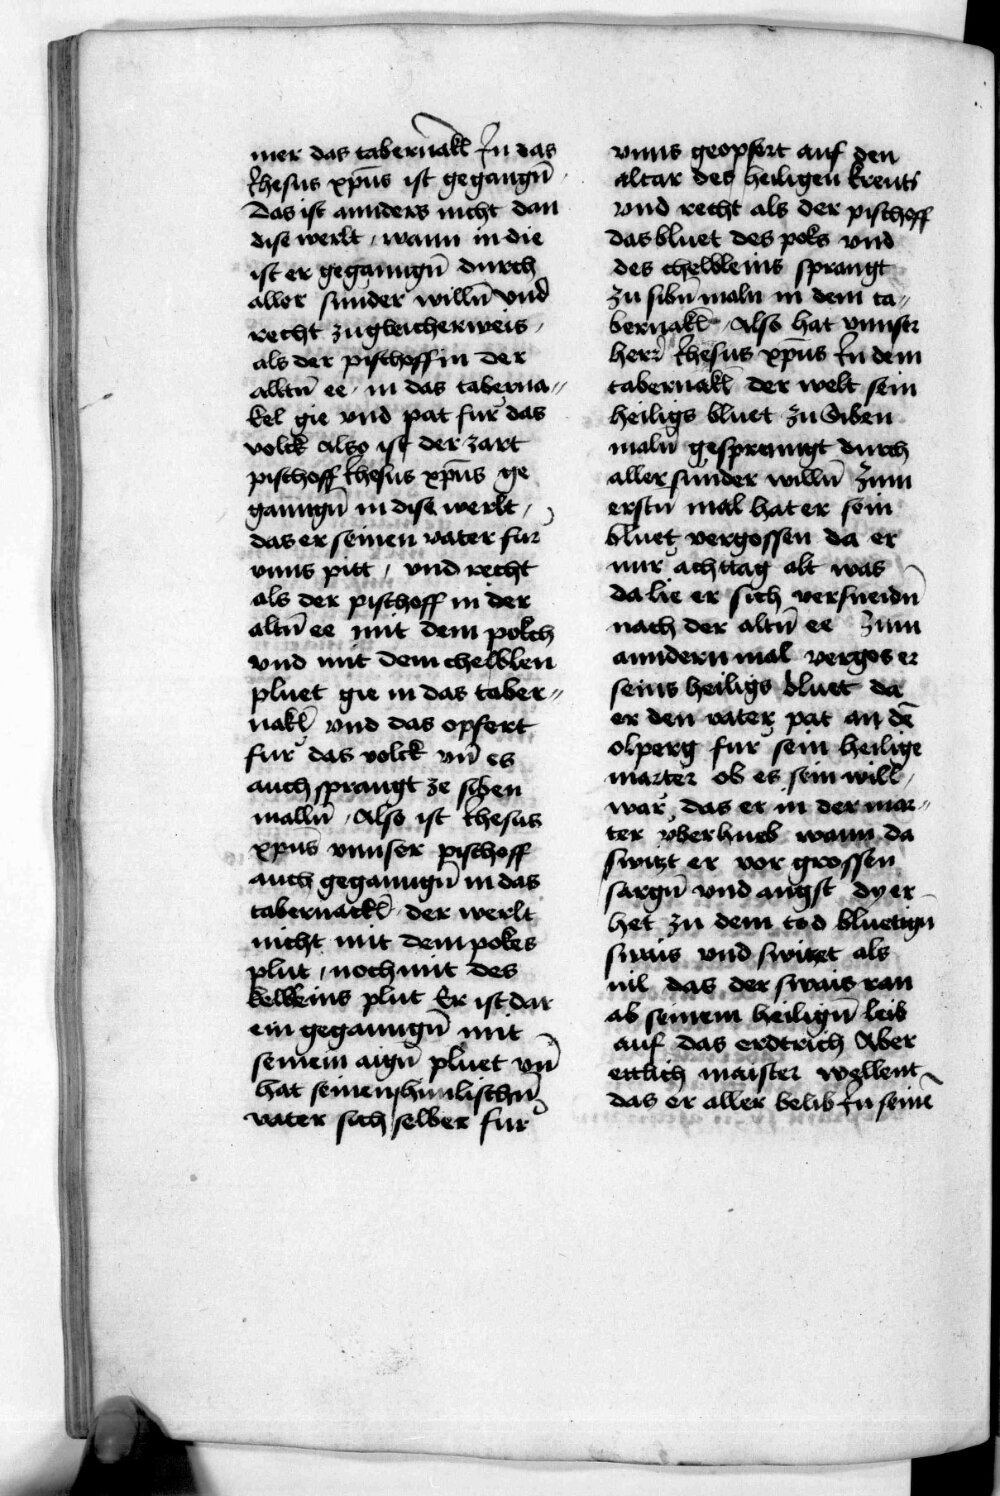 mer das tabernakl̄ Jn das
Jhesus xp̄us ist gegangn̄
Das ist annders nicht dan
dise werlt / wann in die
ist er geganngn̄ durch
aller sunder willn̄ vnd
recht zugleicherweis /
als der pischoff in der
alltn̄ ee / in das taberna„
kel gie vnd pat fur das
volck Also ist der zart
pischoff Jhesus xp̄us ge
ganngn̄ in dise werlt /
das er seinen vater fur
vnns pitt / vnd recht
als der pischoff in der
altn̄ ee mit dem polch
vnd mit dem chelblen
pluet gie in das taber„
nakl̄ vnd das opfert
fur das volck vn̄ es
auch sprangt ze siben
malln̄ / Also ist Jhesus
xp̄us vnnser pischoff
auch geganngn̄ in das
tabernackl̄ der werlt
nicht mit dem pokes
plut / noch mit des
kelbleins plut Er ist dar
ein geganngn̄ mit
seinem aign̄ pluet vn̄
hat seinen himlischn̄
vater sich selber fur
vnns geopfert auf den
altar des heiligen kreuts
vnd recht als der pischoff
das bluet des poks vnd
des chelbleins sprangt
zu sibn̄ maln in dem ta„
bernakl̄ / Also hat vnnser
herr Jhesus xp̄us Jn dem
tabernakl̄ der welt sein
heiligs bluet zu Siben
maln̄ gesprenngt durch
aller sunder willn̄ Zum
erstn̄ mal hat er sein
bluet vergossen da er
nur achttag alt was
da lie er sich versneidn̄
nach der altn̄ ee Zum
anndern mal vergos er
seins heiligs bluet da
er den vater pat an dē
olperg fur sein heilige
marter ob es sein will /
war das er in der mar„
ter vberhueb wann da
switzt er vor grossen
sargn̄ vnd angst dy er
het zu dem tod bluetign̄
swais vnd switzet als
uil das der swais ran
ab seinem heilign̄ leib
auf das erdtrich Aber
ettlich maister wellent
das er aller belib Jn seinē